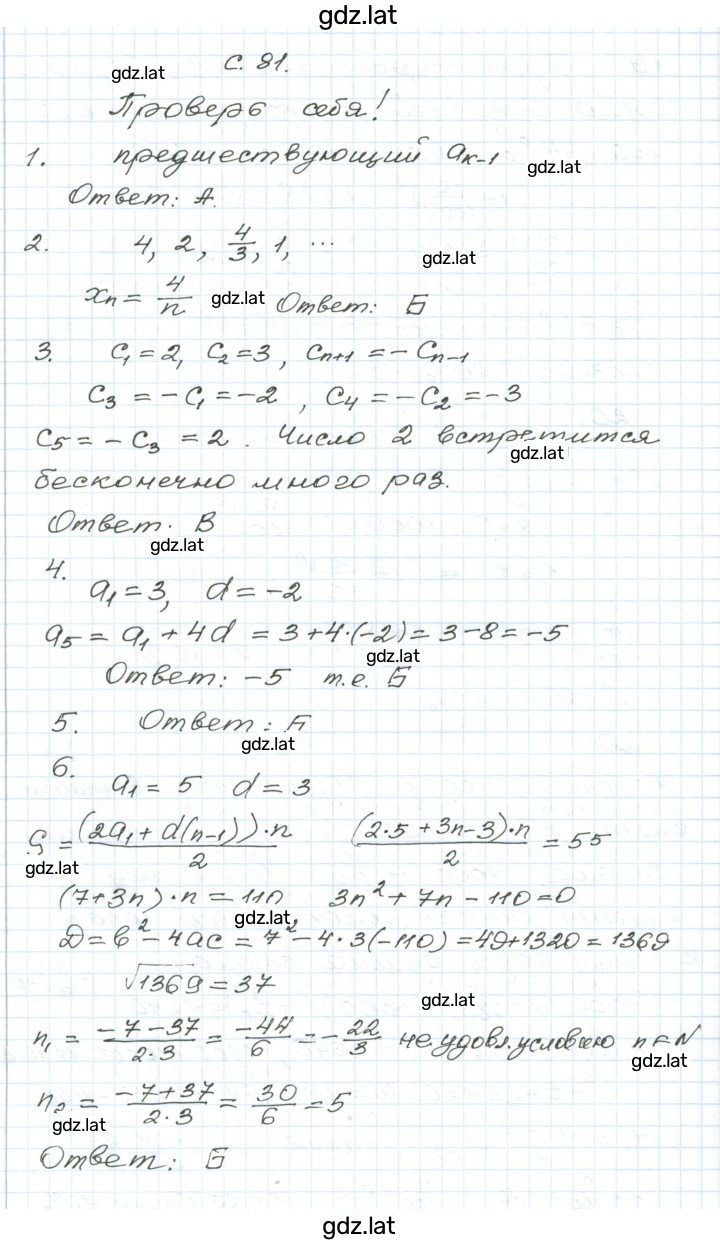 gdz.lat
с. 81.
gdz.lat
Проверь себя!
1. предшествующий aₖ₋₁
gdz.lat
Ответ: А.
2. 4, 2, 4/3, 1, ...
gdz.lat
xₙ = 4/n gdz.lat Ответ: Б
3. C₁ = 2, C₂ = 3, Cₙ₊₁ = - Cₙ₋₁
C₃ = - C₁ = - 2, C₄ = - C₂ = - 3
C₅ = - C₃ = 2. Число 2 встретится
gdz.lat
бесконечно много раз.
Ответ. В
gdz.lat
4. a₁ = 3, d = -2
a₅ = a₁ + 4d = 3 + 4·(-2) = 3 - 8 = -5
gdz.lat
Ответ: -5 т.е. Б
5. Ответ: Б
gdz.lat
6. a₁ = 5 d = 3
S = (2a₁ + d(n-1))·n / 2 (2·5 + 3n-3)·n / 2 = 55
gdz.lat
(7+3n)·n = 110 3n² + 7n - 110 = 0
gdz.lat
D = b² - 4ac = 7² - 4·3(-110) = 49+1320 = 1369
√1369 = 37
gdz.lat
n₁ = (-7-37)/(2·3) = -44/6 = -22/3 не.удовл.условию n∈N
gdz.lat
n₂ = (-7+37)/(2·3) = 30/6 = 5
gdz.lat
Ответ: Б
gdz.lat